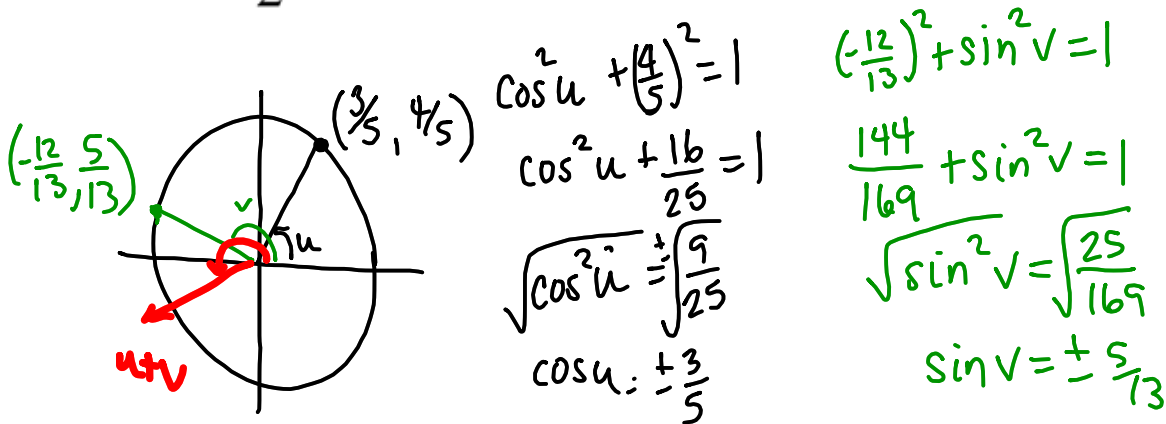 2
(-12/13, 5/13)
(3/5, 4/5)
v
u
u+v
cos²u + (4/5)² = 1
cos²u + 16/25 = 1
√cos²u = ±√9/25
cosu = ± 3/5
(-12/13)² + sin²v = 1
144/169 + sin²v = 1
√sin²v = √25/169
sinv = ± 5/13